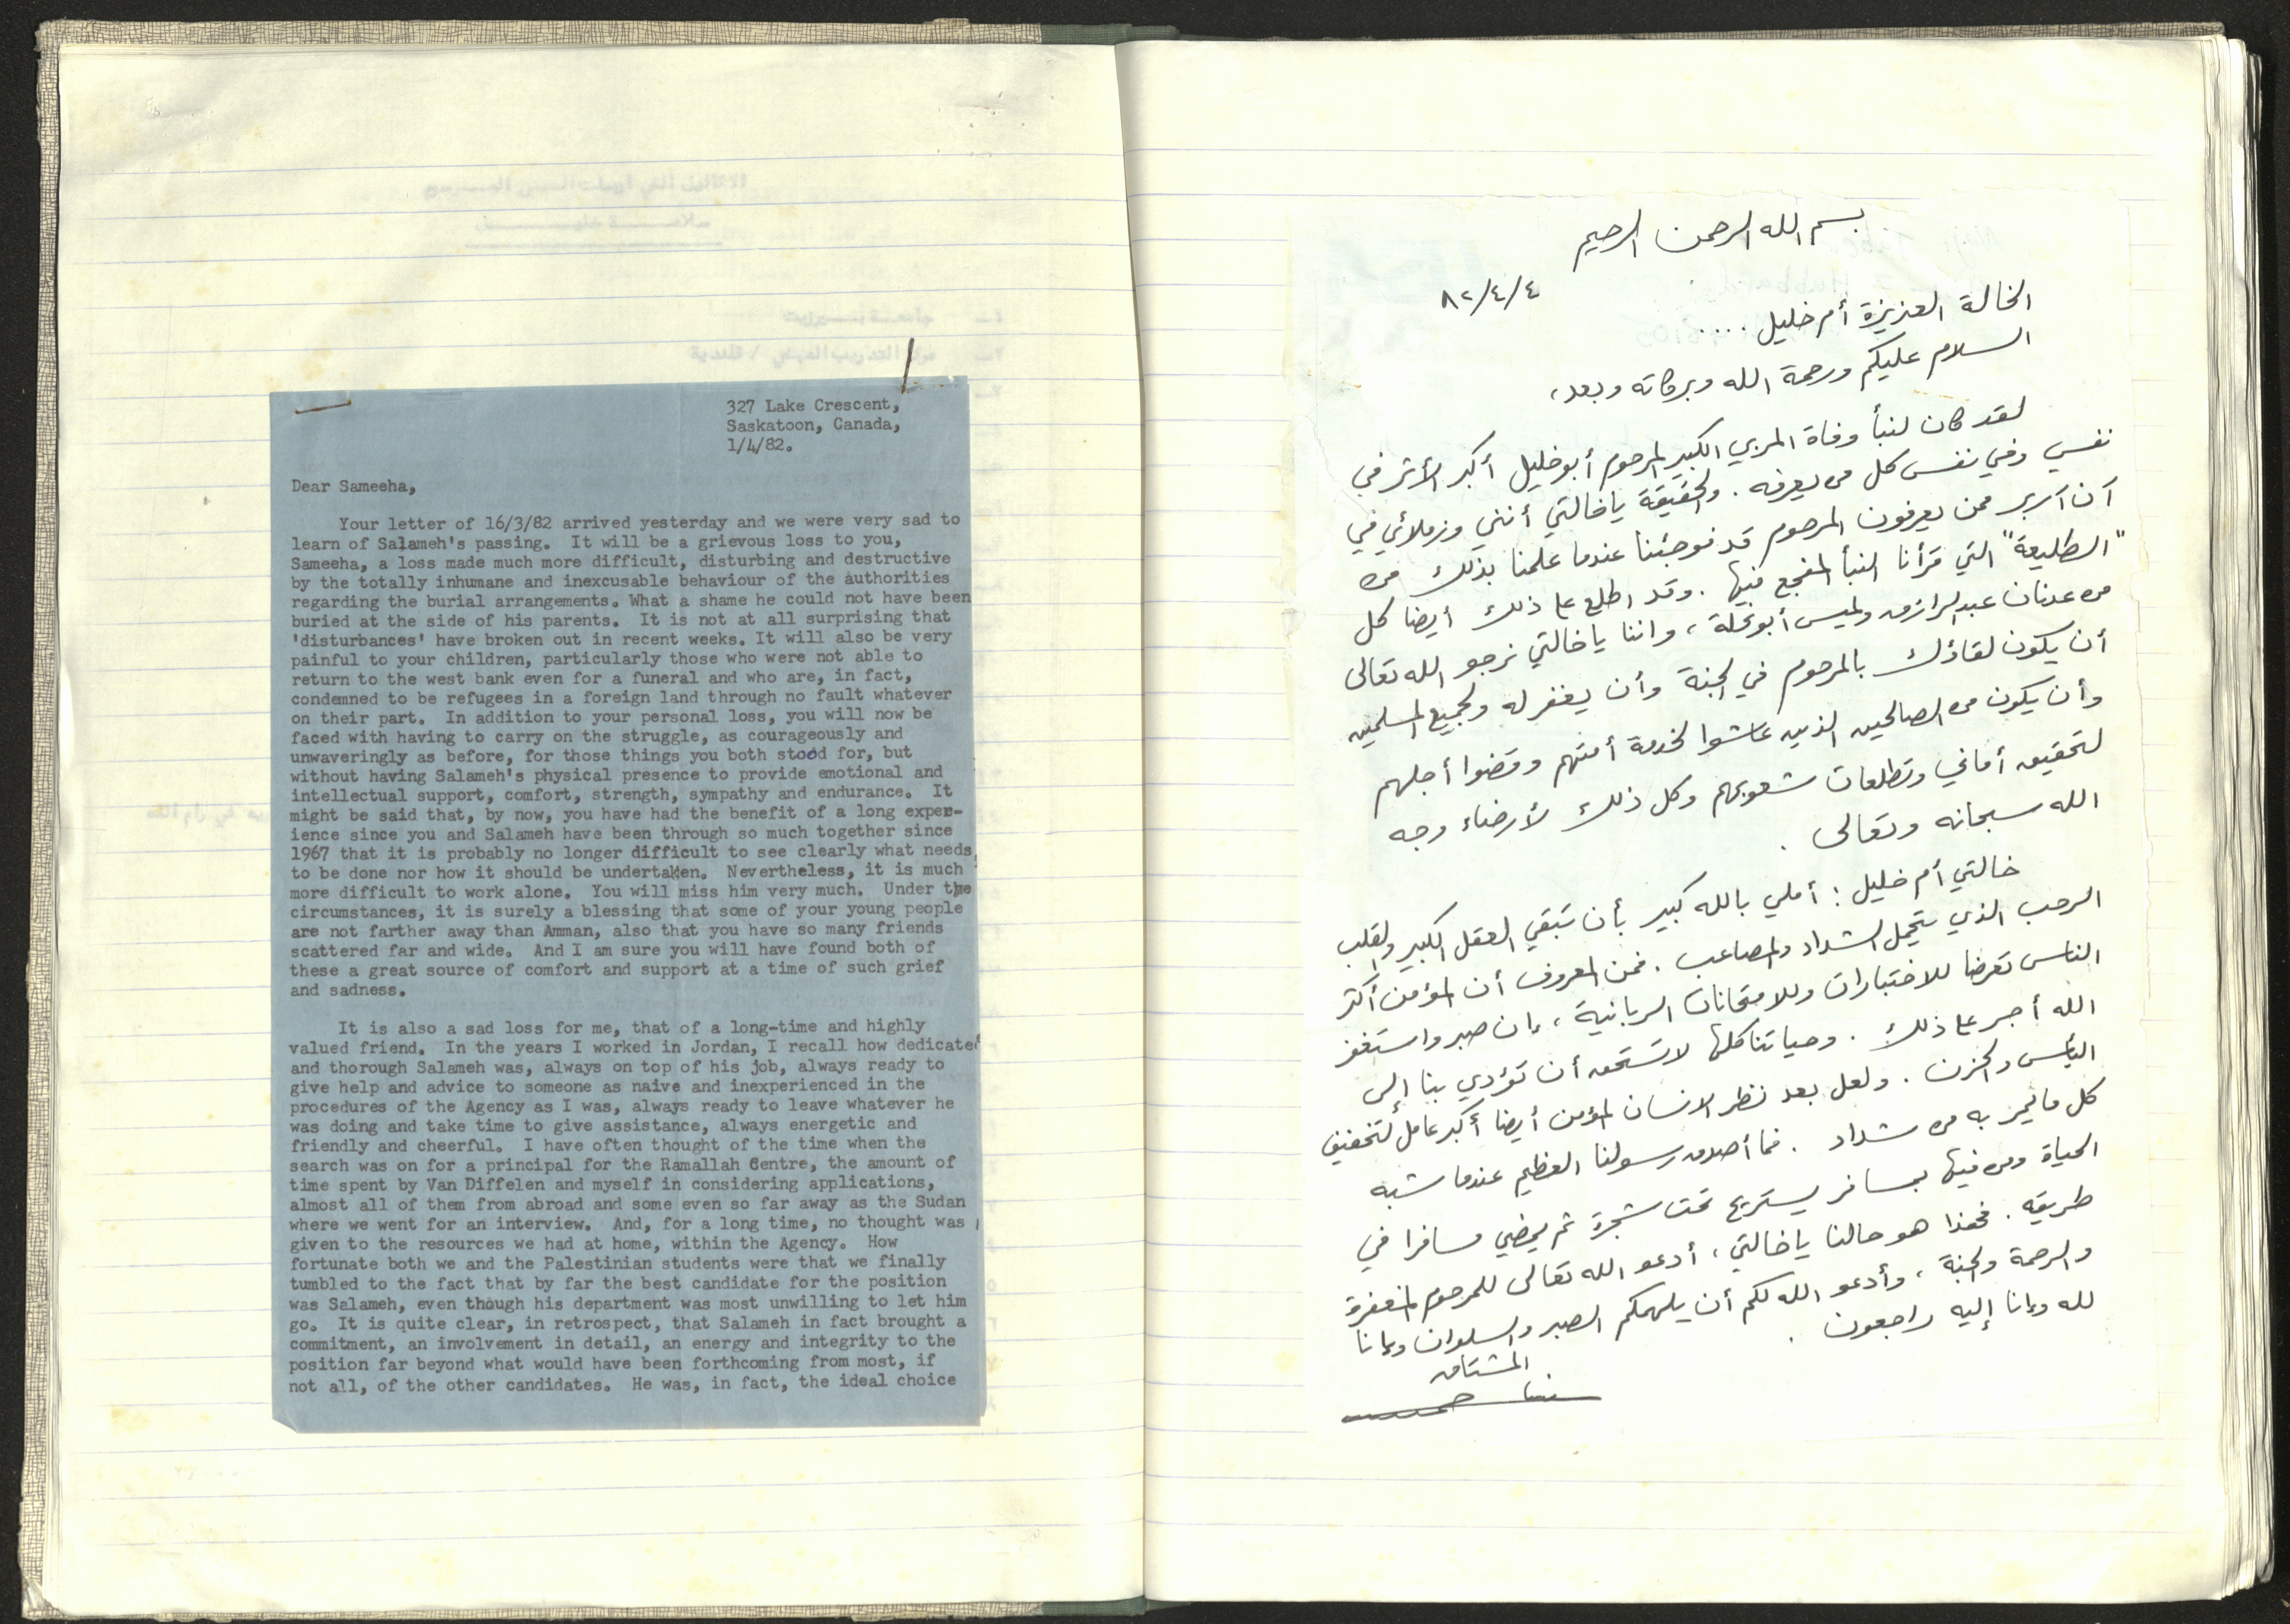 327 Lake Crescent,
Saskatoon, Canada,
1/4/82.
Dear Sameeha,
Your letter of 16/3/82 arrived yesterday and we were very sad to
learn of Salameh's passing. It will be a grievous loss to you,
Sameeha, a loss made much more difficult, disturbing and destructive
by the totally inhumane and inexcusable behaviour of the authorities
regarding the burial arrangements. What a shame he could not have been
buried at the side of his parents. It is not at all surprising that
'disturbances' have broken out in recent weeks. It will also be very
painful to your children, particularly those who were not able to
return to the west bank even for a funeral and who are, in fact,
condemned to be refugees in a foreign land through no fault whatever
on their part. In addition to your personal loss, you will now be
faced with having to carry on the struggle, as courageously and
unwaveringly as before, for those things you both stood for, but
without having Salameh's physical presence to provide emotional and
intellectual support, comfort, strength, sympathy and endurance. It
might be said that, by now, you have had the benefit of a long exper-
ience since you and Salameh have been through so much together since
1967 that it is probably no longer difficult to see clearly what needs
to be done nor how it should be undertaken. Nevertheless, it is much
more difficult to work alone. You will miss him very much. Under the
circumstances, it is surely a blessing that some of your young people
are not farther away than Amman, also that you have so many friends
scattered far and wide. And I am sure you will have found both of
these a great source of comfort and support at a time of such grief
and sadness.
It is also a sad loss for me, that of a long-time and highly
valued friend. In the years I worked in Jordan, I recall how dedicated
and thorough Salameh was, always on top of his job, always ready to
give help and advice to someone as naive and inexperienced in the
procedures of the Agency as I was, always ready to leave whatever he
was doing and take time to give assistance, always energetic and
friendly and cheerful. I have often thought of the time when the
search was on for a principal for the Ramallah Centre, the amount of
time spent by Van Diffelen and myself in considering applications,
almost all of them from abroad and some even so far away as the Sudan
where we went for an interview. And, for a long time, no thought was
given to the resources we had at home, within the Agency. How
fortunate both we and the Palestinian students were that we finally
tumbled to the fact that by far the best candidate for the position
was Salameh, even though his department was most unwilling to let him
go. It is quite clear, in retrospect, that Salameh in fact brought a
commitment, an involvement in detail, an energy and integrity to the
position far beyond what would have been forthcoming from most, if
not all, of the other candidates. He was, in fact, the ideal choice
بسم الله الرحمن الرحيم
٨٢/٤/٤
الخالة العزيزة أم خليل ....
السلام عليكم ورحمة الله وبركاته وبعد،
لقد كان لنبأ وفاة المربي الكبير المرحوم أبو خليل أكبر الأثر في
نفسي وفي نفس كل من يعرفه. والحقيقة يا خالتي أنني وزملائي في
آن آربر ممن يعرفون المرحوم قد فوجئنا عندما علمنا بذلك من
"الطليعة" التي قرأنا النبأ المفجع فيها. وقد اطلع على ذلك أيضا كل
من عدنان عبد الرازق ولميس أبو نحلة، واننا يا خالتي نرجو الله تعالى
أن يكون لقاؤك بالمرحوم في الجنة وأن يغفر له ولجميع المسلمين
وأن يكون من الصالحين الذين عاشوا لخدمة أمتهم وقضوا أجلهم
لتحقيق أماني وتطلعات شعوبهم وكل ذلك لأرضاء وجه
الله سبحانه وتعالى.
خالتي أم خليل: أملي بالله كبير بأن تبقي العقل الكبير والقلب
الرحب الذي يتحمل الشداد والمصاعب. فمن المعروف أن المؤمن أكثر
الناس تعرضا للاختبارات وللامتحانات الربانية، إن صبر واستغفر
الله أجر على ذلك. وحياتنا كلها لا تستحق أن تؤدي بنا إلى
اليأس والحزن. ولعل بعد نظر الانسان المؤمن أيضا أكبر عامل لتخفيف
كل ما يمر به من شداد. فما أصدق رسولنا العظيم عندما شبه
الحياة ومن فيها بمسافر يستريح تحت شجرة ثم يمضي مسافرا في
طريقه. فهذا هو حالنا يا خالتي، أدعو الله تعالى للمرحوم المغفرة
والرحمة والجنة، وأدعو الله لكم أن يلهمكم الصبر والسلوان وإنا
لله وإنا إليه راجعون.
المشتاق